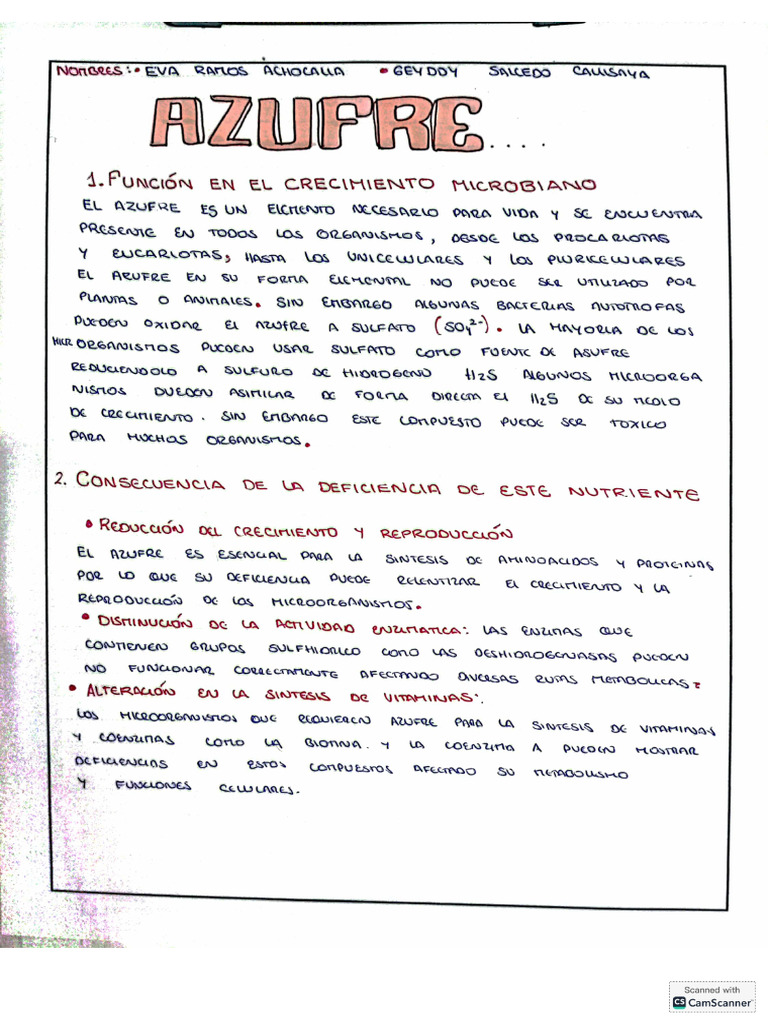 NOMBRES: • EVA RAMOS ACHOCALLA • GEYDDY SALCEDO CALLISAYA
AZUFRE....
1. FUNCIÓN EN EL CRECIMIENTO MICROBIANO
EL AZUFRE ES UN ELEMENTO NECESARIO PARA VIDA Y SE ENCUENTRA
PRESENTE EN TODOS LOS ORGANISMOS, DESDE LOS PROCARIOTAS
Y EUCARIOTAS, HASTA LOS UNICELULARES Y LOS PLURICELULARES
EL AZUFRE EN SU FORMA ELEMENTAL NO PUEDE SER UTILIZADO POR
PLANTAS O ANIMALES. SIN EMBARGO ALGUNAS BACTERIAS AUTOTROFAS
PUEDEN OXIDAR EL AZUFRE A SULFATO (SO₄²⁻). LA MAYORIA DE LOS
MICRORGANISMOS PUEDEN USAR SULFATO COMO FUENTE DE ASUFRE
REDUCIENDOLO A SULFURO DE HIDROGENO H₂S ALGUNOS MICROORGA
NISMOS PUEDEN ASIMILAR DE FORMA DIRECTA EL H₂S DE SU MEDIO
DE CRECIMIENTO. SIN EMBARGO ESTE COMPUESTO PUEDE SER TOXICO
PARA MUCHOS ORGANISMOS.
2. CONSECUENCIA DE LA DEFICIENCIA DE ESTE NUTRIENTE
• REDUCCIÓN DEL CRECIMIENTO Y REPRODUCCIÓN
EL AZUFRE ES ESENCIAL PARA LA SINTESIS DE AMINOACIDOS Y PROTEINAS
POR LO QUE SU DEFICIENCIA PUEDE RELENTIZAR EL CRECIMIENTO Y LA
REPRODUCCIÓN DE LOS MICROORGANISMOS.
• DISMINUCIÓN DE LA ACTIVIDAD ENZIMATICA: LAS ENZIMAS QUE
CONTIENEN GRUPOS SULFHIDRICO COMO LAS DESHIDROGENASAS PUEDEN
NO FUNCIONAR CORRECTAMENTE AFECTANDO DIVERSAS RUTAS METABOLICAS.
• ALTERACIÓN EN LA SINTESIS DE VITAMINAS:
LOS MICROORGANISMOS QUE REQUIEREN AZUFRE PARA LA SINTESIS DE VITAMINAS
Y COENZIMAS COMO LA BIOTINA. Y LA COENZIMA A PUEDEN MOSTRAR
DEFICIENCIAS EN ESTOS COMPUESTOS AFECTADO SU METABOLISMO
Y FUNCIONES CELULARES.
Scanned with
CS CamScanner